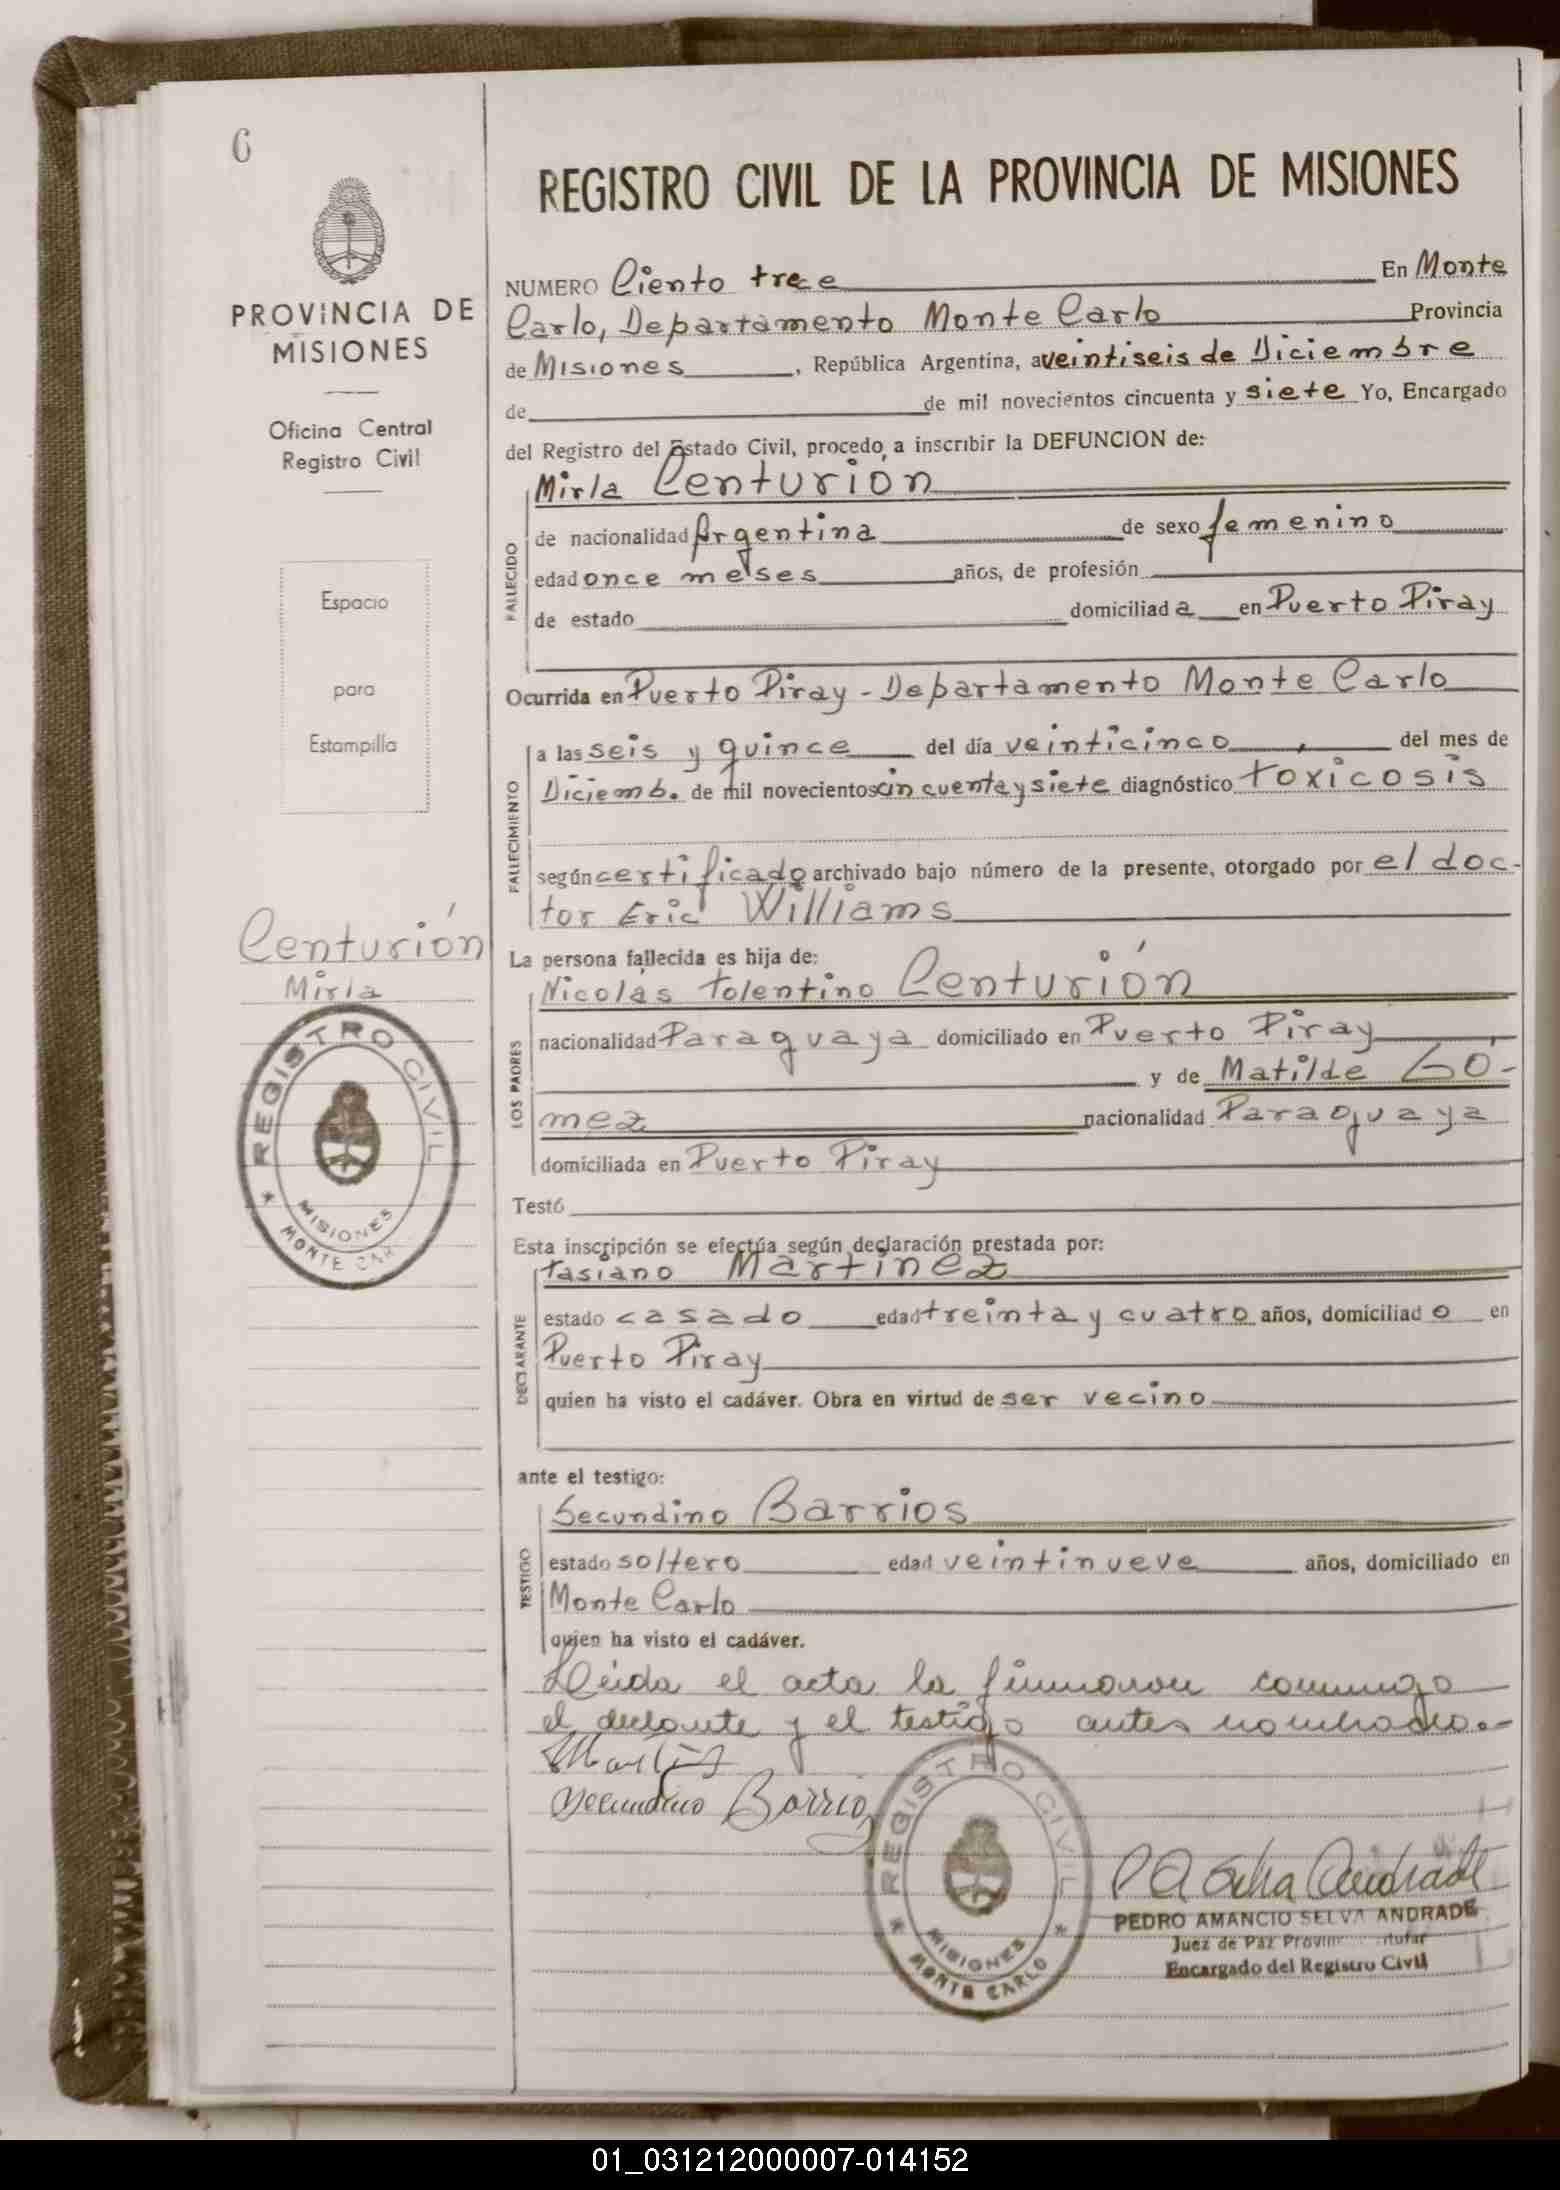 6
PROVINCIA DE
MISIONES
Oficina Central
Registro Civil
Espacio
para
Estampilla
Centurión
Mirla
REGISTRO CIVIL
MISIONES
* MONTE CAR
REGISTRO CIVIL DE LA PROVINCIA DE MISIONES
NUMERO Ciento trece En Monte
Carlo, Departamento Monte Carlo Provincia
de Misiones, República Argentina, a veintiseis de Diciembre
de de mil novecientos cincuenta y siete Yo, Encargado
del Registro del Estado Civil, procedo a inscribir la DEFUNCION de:
Mirla Centurión
FALLECIDO
de nacionalidad Argentina de sexo femenino
edad once meses años, de profesión
de estado domiciliad a en Puerto Piray
Ocurrida en Puerto Piray - Departamento Monte Carlo
FALLECIMIENTO
a las seis y quince del día veinticinco, del mes de
Diciemb. de mil novecientos cincuenta y siete diagnóstico toxicosis
según certificado archivado bajo número de la presente, otorgado por el doc-
tor Eric Williams
La persona fallecida es hija de:
LOS PADRES
Nicolás Tolentino Centurión
nacionalidad Paraguaya domiciliado en Puerto Piray
y de Matilde Gó-
mez nacionalidad Paraguaya
domiciliada en Puerto Piray
Testó
Esta inscripción se efectúa según declaración prestada por:
DECLARANTE
Tasiano Martinez
estado casado edad treinta y cuatro años, domiciliad o en
Puerto Piray
quien ha visto el cadáver. Obra en virtud de ser vecino
ante el testigo:
TESTIGO
Secundino Barrios
estado soltero edad veintinueve años, domiciliado en
Monte Carlo
quien ha visto el cadáver.
Leida el acta la firmaron conmigo
el declarante y el testigo antes nombrado.-
Secundino Barrios
REGISTRO CIVIL
MISIONES
* MONTE CARLO *
P A Selva Andrade
PEDRO AMANCIO SELVA ANDRADE
Juez de Paz
Encargado del Registro Civil
01_031212000007-014152